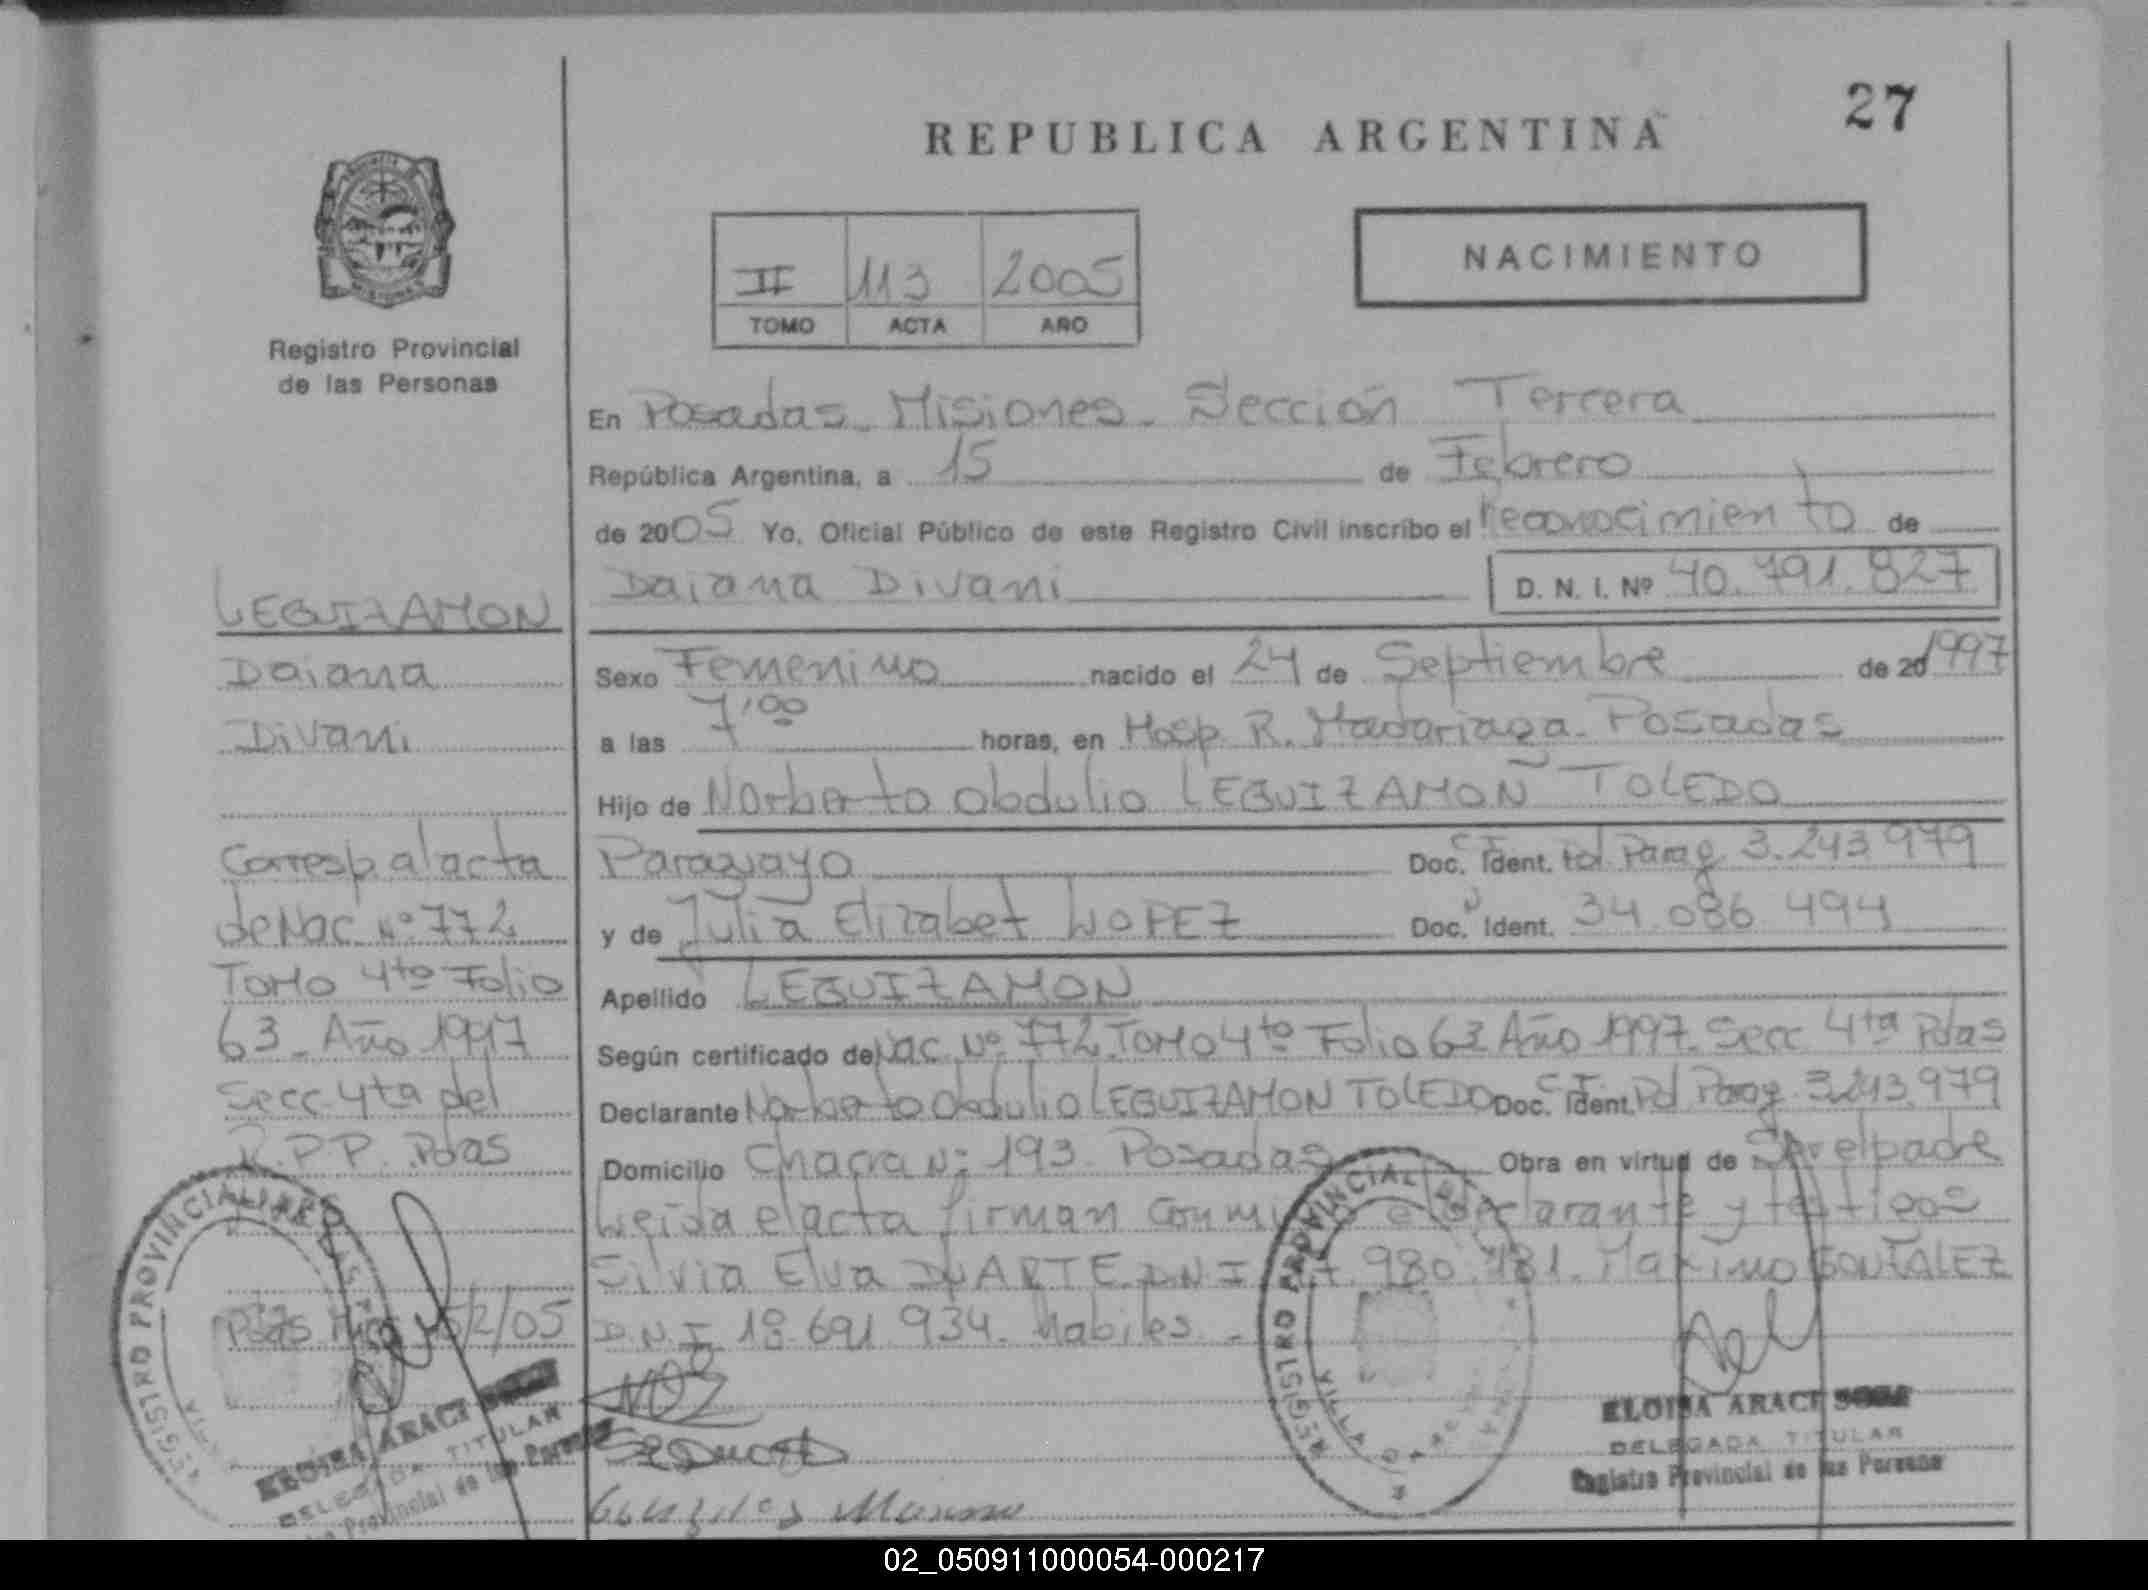 27
REPUBLICA ARGENTINA
NACIMIENTO
II 113 2005
TOMO ACTA AÑO
Registro Provincial
de las Personas
En Posadas - Misiones - Sección Tercera
República Argentina, a 15 de Febrero
de 2005 Yo, Oficial Público de este Registro Civil inscribo el reconocimiento de
Daiana Divani D. N. I. Nº 40.791.827
LEGUIZAMON
Daiana
Divani
Corresp. al acta
de Nac. Nº 772
Tomo 4to Folio
63 - Año 1997
Secc 4ta del
R.P.P. Pdas
Sexo Femenino nacido el 24 de Septiembre de 20 1997
a las 7,00 horas, en Hosp R. Madariaga - Posadas
Hijo de Norberto Obdulio LEGUIZAMON TOLEDO
Paraguayo Doc. Ident. Pol. Parag. 3.243.979
y de Julia Elizabet LOPEZ Doc. Ident. 34.086.494
Apellido LEGUIZAMON
Según certificado de Nac. Nº 772 Tomo 4to Folio 63 Año 1997. Secc 4ta Pdas
Declarante Norberto Obdulio LEGUIZAMON TOLEDO Doc. Ident. Pol Parag. 3.243.979
Domicilio Chacra Nº 193 - Posadas Obra en virtud de Ser el padre
Leída el acta firman el declarante y testigos
Silvia Elva DUARTE D.N.I. 980.481. Maximo GONZALEZ
D.N.I. 18.691.934. habiles -
Pdas Mnes 15/2/05
REGISTRO PROVINCIAL DE LAS
REGISTRO PROVINCIAL DE
VILLA
ELOISA ARACI SOSA
DELEGADA TITULAR
Provincial de las Personas
ELOISA ARACI SOSA
DELEGADA TITULAR
Registro Provincial de las Personas
Gonzalez Maximo
02_050911000054-000217